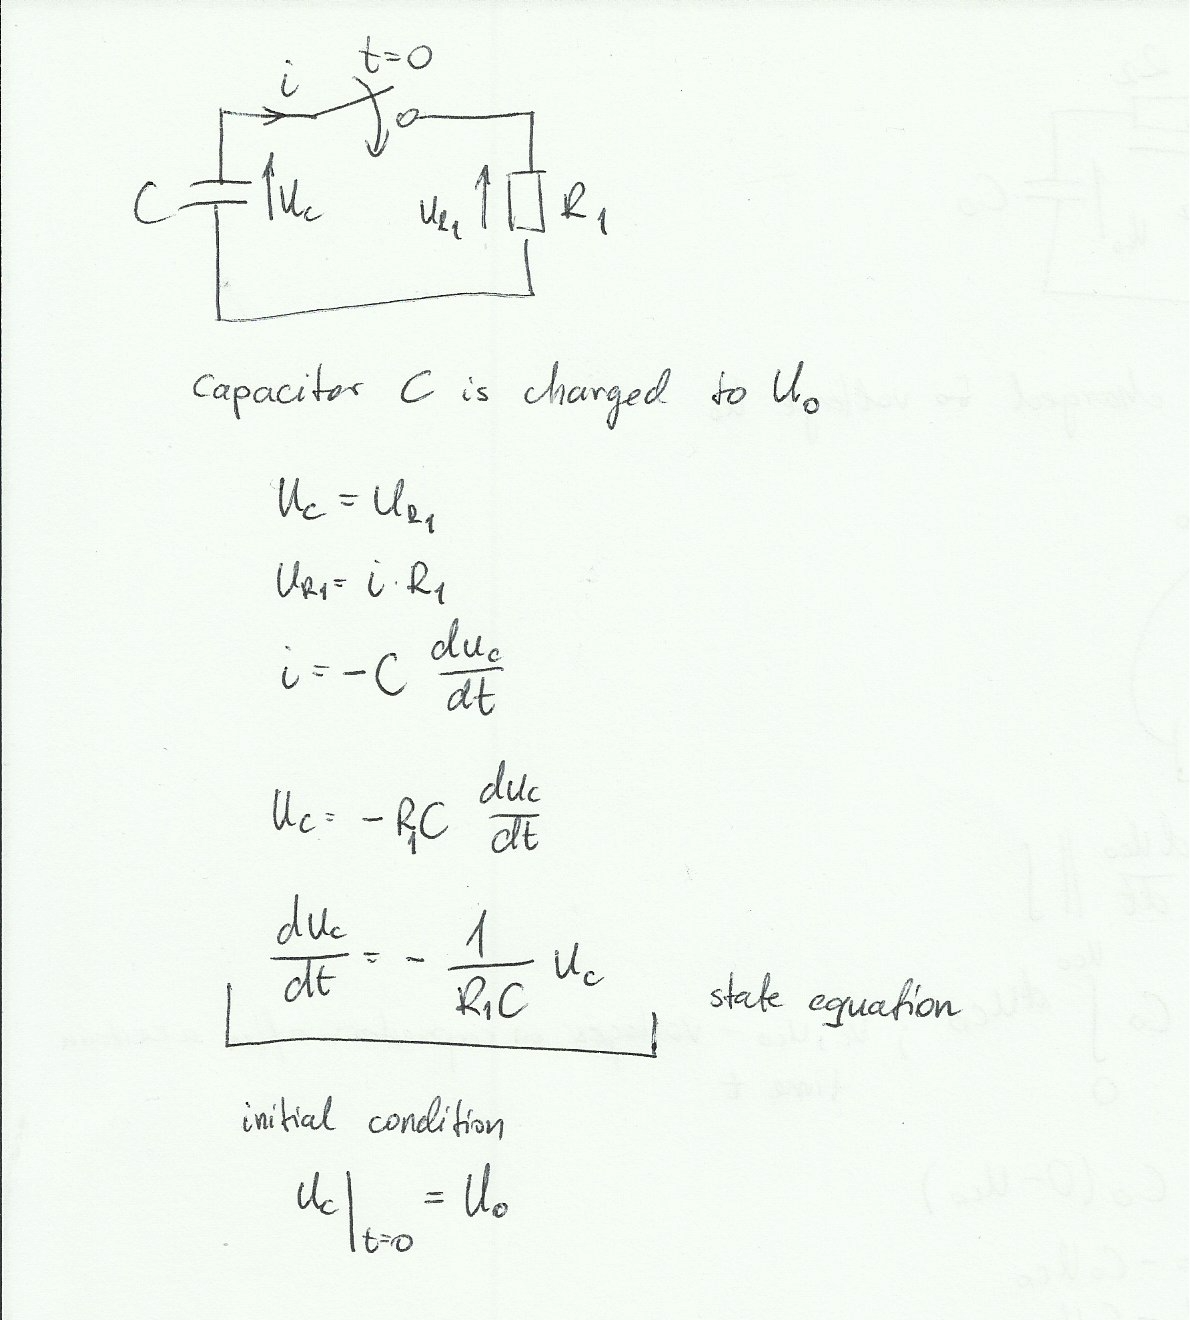 t=0
i
C
u_c
u_R1
R_1
Capacitor C is charged to U_0
u_c = u_R1
u_R1 = i · R_1
i = -C du_c/dt
u_c = -R_1C du_c/dt
du_c/dt = - 1/(R_1C) u_c
state equation
initial condition
u_c|_t=0 = U_0